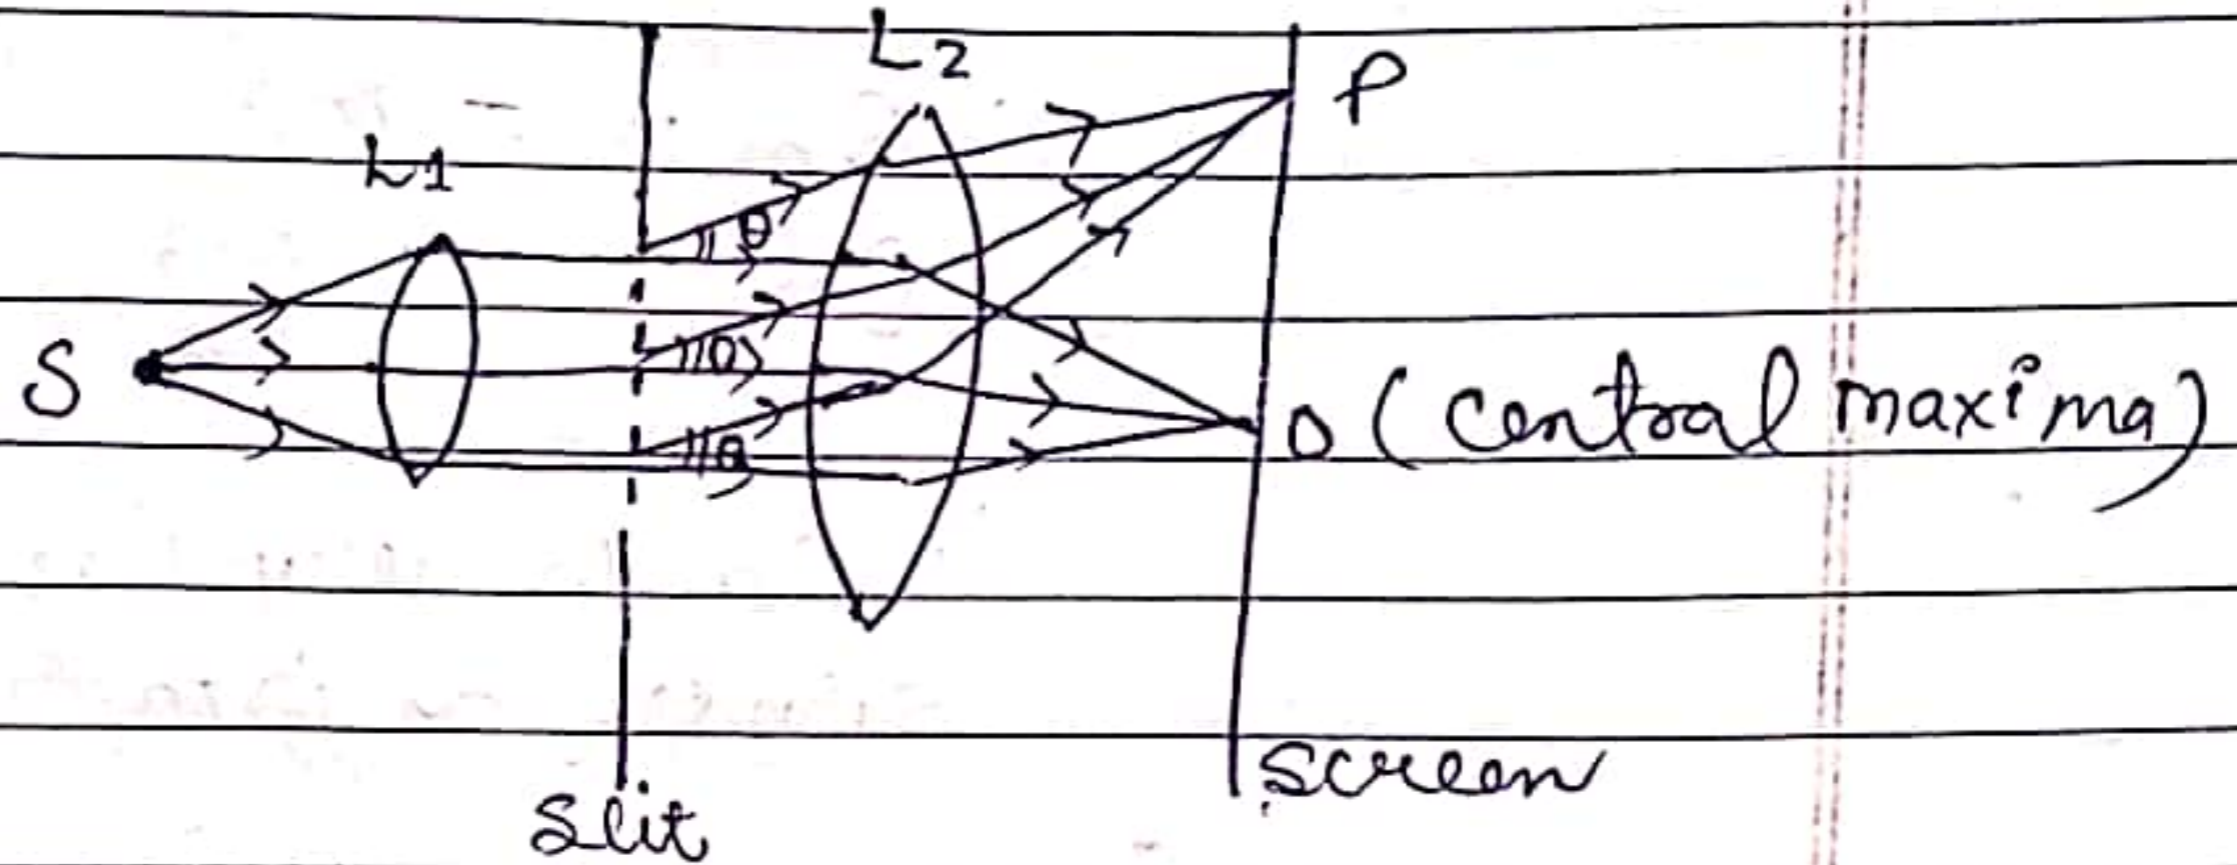 L2
P
L1
θ
S
θ
O (central maxima)
θ
screen
slit